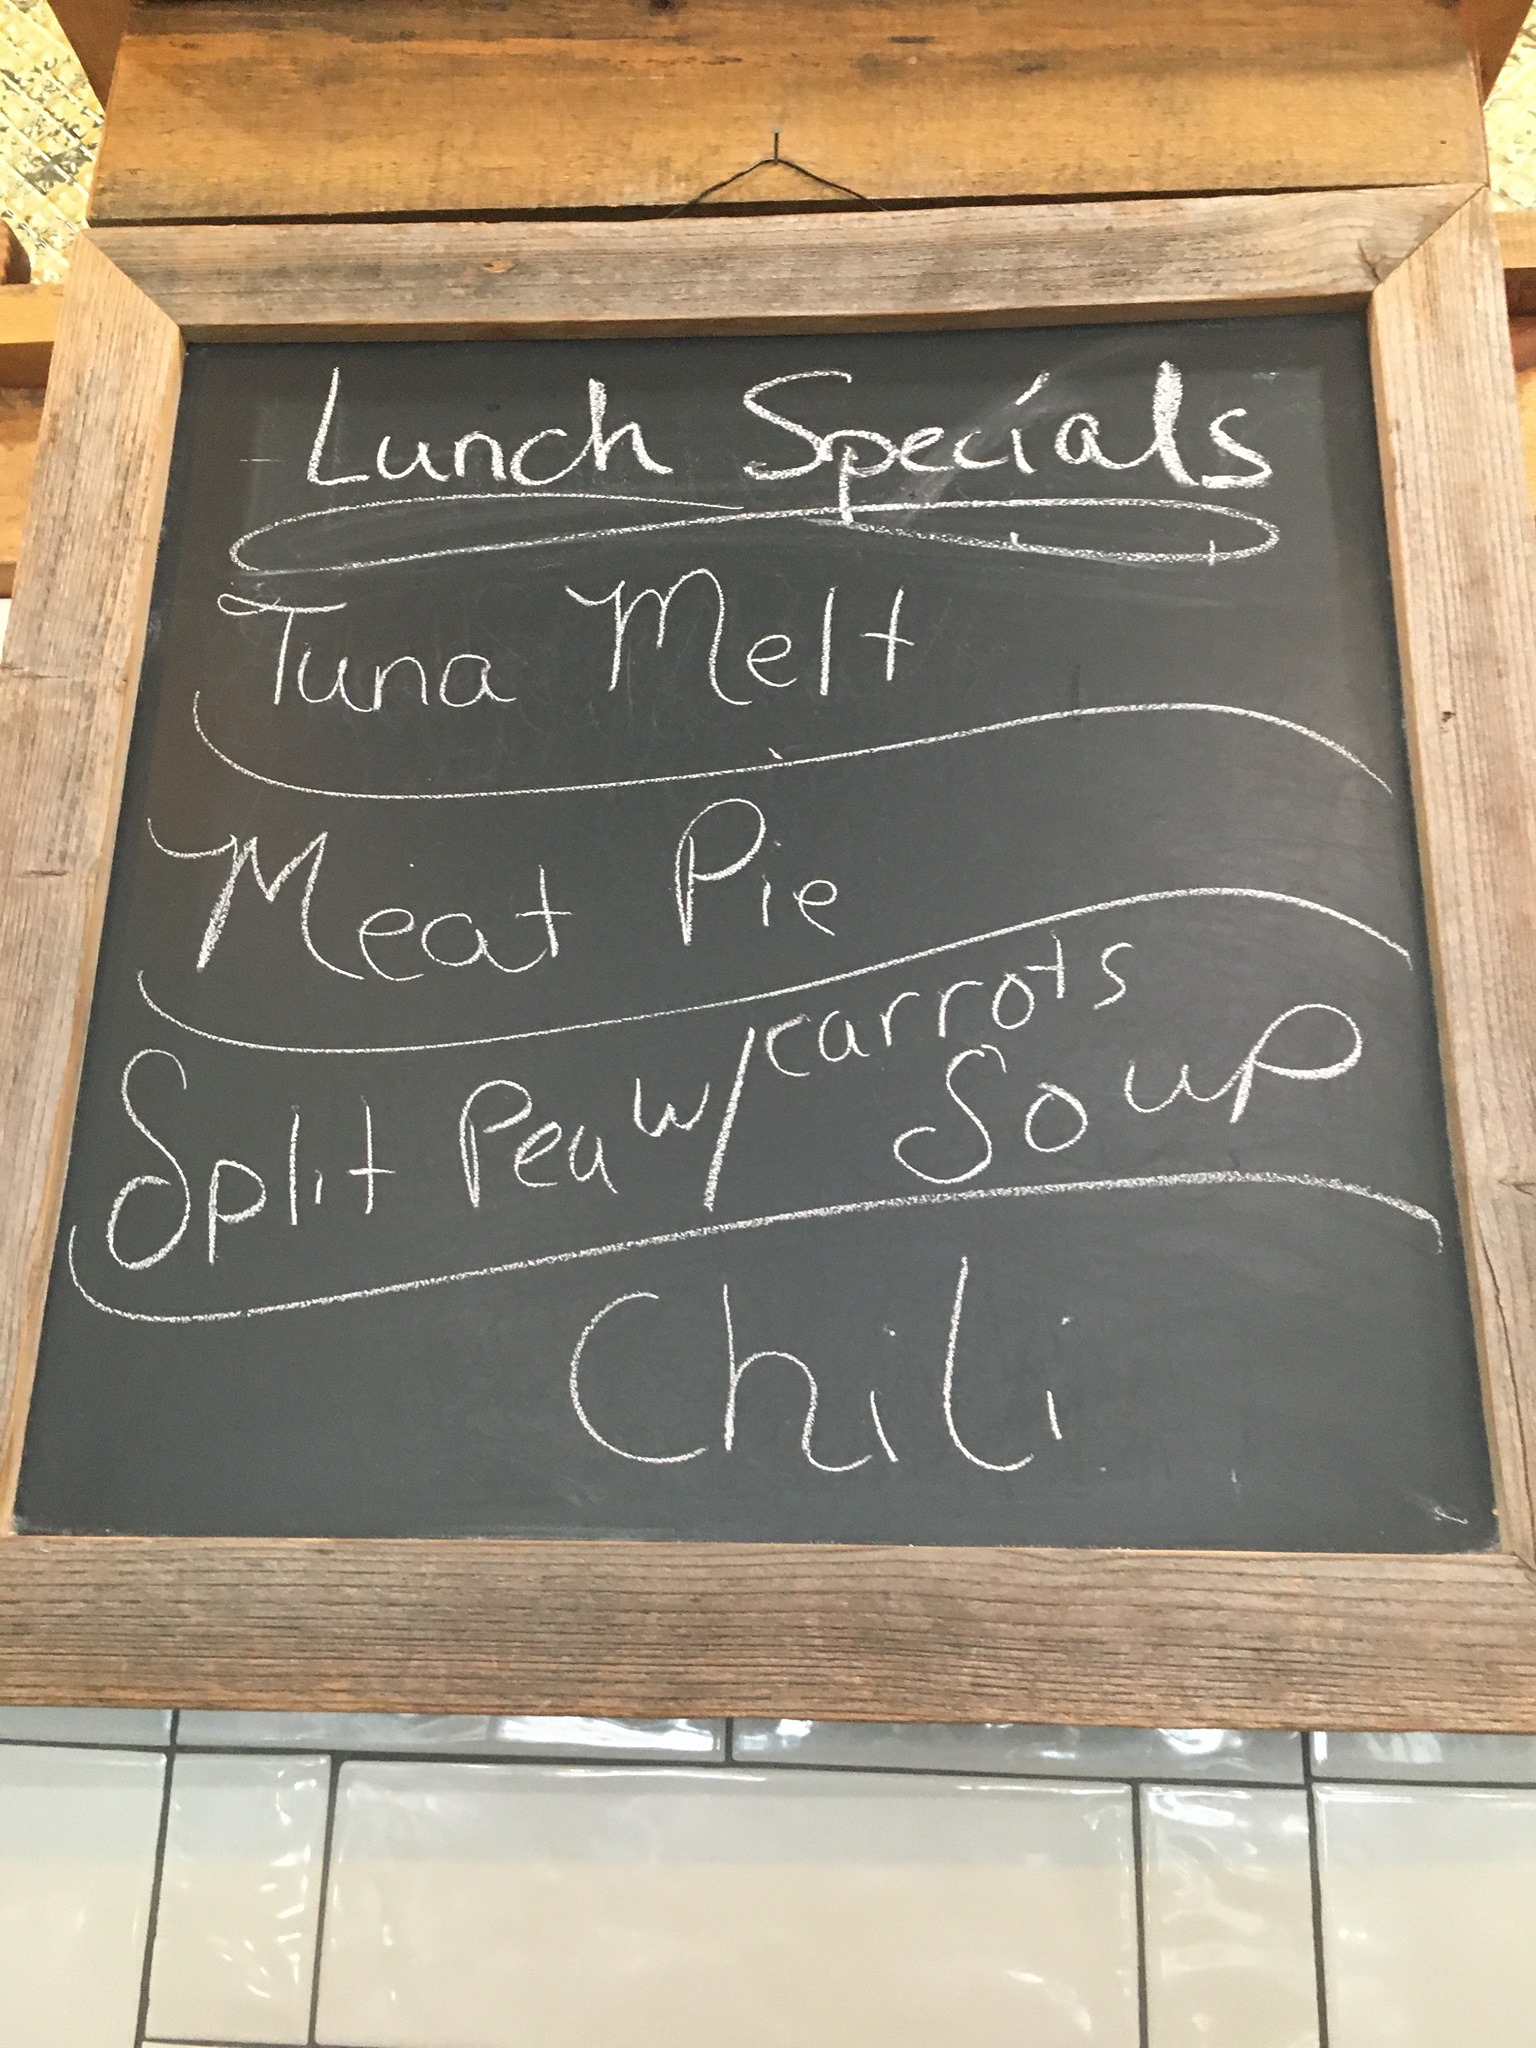 Lunch Specials
Tuna Melt
Meat Pie
Split Pea w/carrots
Soup
Chili